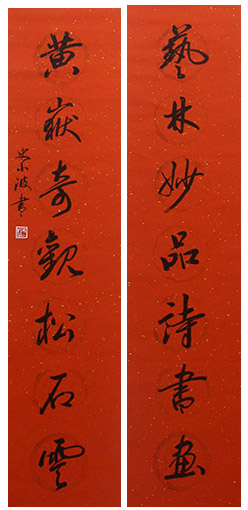 藝林妙品詩書畫
黃嶽奇觀松石雲
小波書